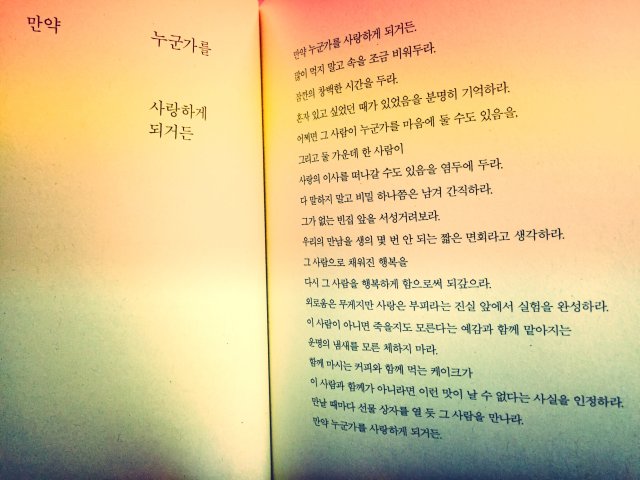 만약
누군가를
사랑하게
되거든
만약 누군가를 사랑하게 되거든.
많이 먹지 말고 속을 조금 비워두라.
잠깐의 창백한 시간을 두라.
혼자 있고 싶었던 때가 있었음을 분명히 기억하라.
어쩌면 그 사람이 누군가를 마음에 둘 수도 있음을,
그리고 둘 가운데 한 사람이
사랑의 이사를 떠나갈 수도 있음을 염두에 두라.
다 말하지 말고 비밀 하나쯤은 남겨 간직하라.
그가 없는 빈집 앞을 서성거려보라.
우리의 만남을 생의 몇 번 안 되는 짧은 면회라고 생각하라.
그 사람으로 채워진 행복을
다시 그 사람을 행복하게 함으로써 되갚으라.
외로움은 무게지만 사랑은 부피라는 진실 앞에서 실험을 완성하라.
이 사람이 아니면 죽을지도 모른다는 예감과 함께 맡아지는
운명의 냄새를 모른 체하지 마라.
함께 마시는 커피와 함께 먹는 케이크가
이 사람과 함께가 아니라면 이런 맛이 날 수 없다는 사실을 인정하라.
만날 때마다 선물 상자를 열 듯 그 사람을 만나라.
만약 누군가를 사랑하게 되거든.